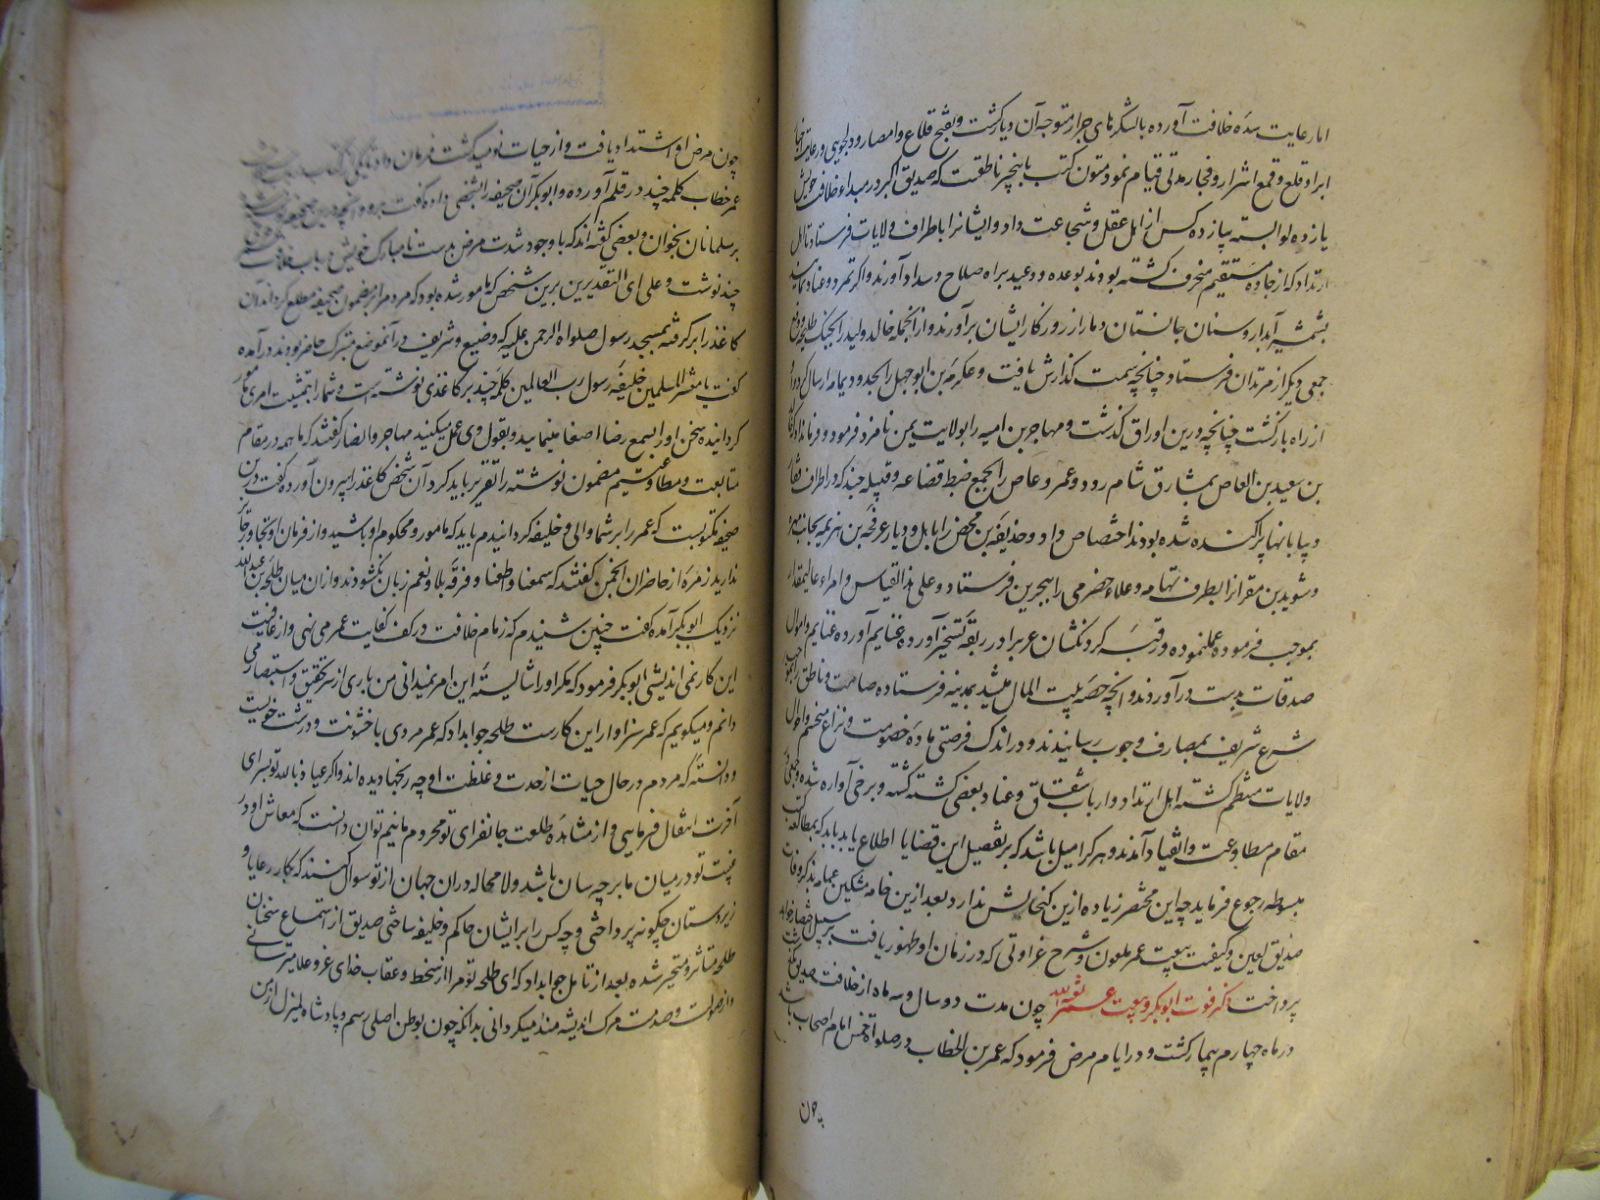 امارعایت سده خلافت آورده بالشکرهای جرار متوجه آن دیار گشت وبفتح قلاع وامصار ودلجویی ورعایت
ابرار وقلع وقمع اشرار وفجار مدتی قیام نمود ومتون کتب باینخبر ناطقست که صدیق اکبر در مبداء خلافت خویش
یازده لوا بسته بیازده کس از اهل عقل وشجاعت داد وایشانرا باطراف ولایات فرستاد تا اهل
ارتداد که از جاده مستقیم منحرف گشته بودند بوعده ووعید براه صلاح وسداد آورند واگر تمرد وعناد نمایند
بشمشیر آبدار وسنان جانستان دمار از روزگار ایشان برآورند وازانجمله خالد ولید را بجنک طلیحه و
جمعی دیگر از مرتدان فرستاد چنانچه سمت گذارش یافت وعکرمه بن ابوجهل را بحدود یمامه ارسال کرد و او
از راه بازگشت چنانچه درین اوراق گذشت ومهاجر بن امیه را بولایت یمن نامزد فرمود و فرمانداد که خالد
بن سعید بن العاص بمشارق شام رود وعمرو عاص را بجمع ضبط قضاعه وقبیله چند که در اطراف
وبیابانها پراکنده شده بودند اختصاص داد وحذیفه بن محض را باهل ودیار عرفجه بن هرثمه بجانب مهره
وسوید بن مقرانرا بطرف تهامه وعلاء حضرمی را ببحرین فرستاد وعلی هذا القیاس وامراء عالیمقدار
بموجب فرموده عملنموده ورقبه گردنکشان عربرا در ربقه تسخیر آورده غنایم آورده غنایم واموال
صدقات بدست درآوردند وآنچه حصه بیت المال میشد بمدینه فرستاده صامت وناطق را
شرع شریف بمصارف وجوب رسانیدند ودر اندک فرصتی ماده خصومت ونزاع منحسم واحوال
ولایات منتظم گشته اهل ارتداد وارباب شقاق وعناد بعضی کشته گشته وبرخی آواره شده وجمعی در
مقام مطاوعت وانقیاد آمدند وهر کرا میل باشد که بر تفصیل این قضایا اطلاع یابد باید که بمطالعه کتب
مبسوطه رجوع فرماید چه این مختصر زیاده ازین گنجایش ندارد بعد ازین خامه مشکین عمامه بذکر وفات
صدیق لعین وکیفیت بیعت عمر ملعون وشرح غزاوتی که در زمان او ظهور یافت بر سبیل اختصار خواهد
پرداخت ذکر فوت ابوبکر وبیعت عمر لعنه الله چون مدت دو سال وسه ماه از خلافت صدیق بگذشت
در ماه چهارم بیمار گشت ودر ایام مرض فرمود که عمر بن الخطاب در صلواة خمس امام اصحاب باشد
چون
چون مرض او اشتداد یافت واز حیات نومید گشت فرمان داد تا یکی از کتاب
عمر خطاب کلمه چند در قلم آورده وابوبکر آن صحیفه را بشخصی داده گفت برو وآنچه درین صحیفه
بر مسلمانان بخوان وبعضی گفته اند که با وجود شدت مرض بدست نامبارک خویش در باب خلافت
چند نوشت وعلی ای التقدیرین برین شخص که مامور شده بود که مردم را بر مضمون صحیفه مطلع گرداند آن
کاغذ را برگرفته بمسجد رسول صلواه الرحمن علیه که وضیع وشریف در آنموضع متبرک حاضر بودند درآمده
گفت یا معشر المسلمین خلیفه رسول رب العالمین کلمه چند بر کاغذی نوشته است وشما را بتمشیت امری مامور
گردانیده سخن اورا بسمع رضا اصغا مینمایید وبقول وی عمل میکنید مهاجر وانصار گفتند که ما همه در مقام
متابعت ومطاوعتیم مضمون نوشته را تقریر باید کرد آن شخص کاغذ را بیرون آورده گفت درین
صحیفه مکتوبست که عمر را بر شما والی وخلیفه گردانیدم باید که مامور ومحکوم او باشید واز فرمان او تجاوز جایز
ندارید زمره از حاضران انجمن گفتند که سمعنا واطعنا وفرقه بلا ونعم زبان نگشودند وازان میان طلحه بن عبدالله
نزدیک ابوبکر آمده گفت چنین شنیدم که زمام خلافت در کف کفایت عمر می نهی واز عاقبت
این کار نمی اندیشی ابوبکر فرمود که مگر اورا شایسته این امر نمیدانی من باری از سر تحقیق واستبصار می
دانم ومیگویم که عمر سزاوار این کارست طلحه جوابداد که عمر مردی با خشونت ودرشت خویست
ودانسته که مردم در حال حیات از حدت وغلظت او چه رنجها دیده اند واگر عیاذ بالله تو بسرای
آخرت انتقال فرمایی واز مشاهده طلعت جانفزای تو محروم مانیم توان دانست که معاش او در
غیبت تو در میان ما بر چه سان باشد ولامحاله دران جهان از تو سوال کنند که بکار رعایا و
زیردستان چگونه پرداختی وچه کس را بر ایشان حاکم وخلیفه ساختی صدیق از استماع سخنان
طلحه متاثر ومتحیر شده بعد از تامل جوابداد که ای طلحه تو مرا از سخط وعقاب خدای عز وعلا میترسانی
واز صولت وصدمت مرک اندیشه مند میگردانی بدانکه چون بوطن اصلی رسم وپادشاه لم یزل ازین